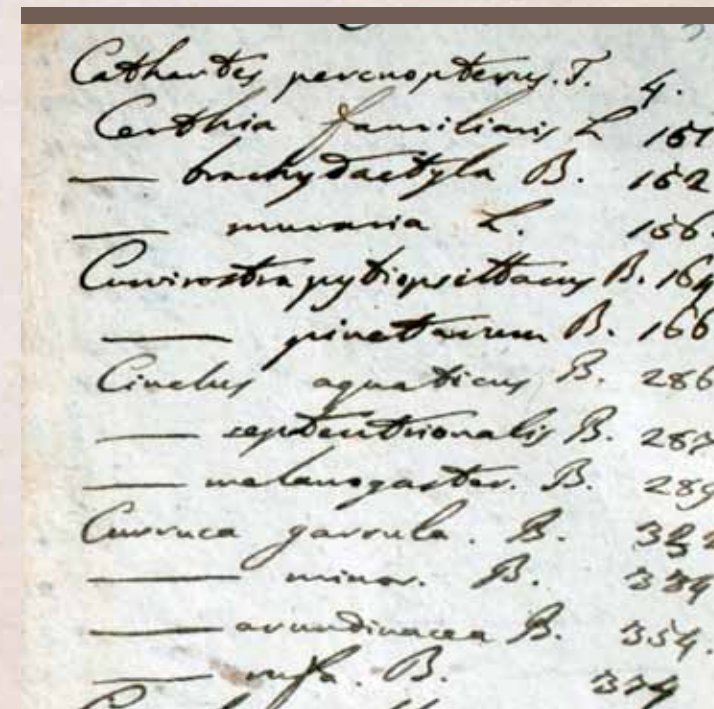 Cathartes percnopterus. T. 4.
Certhia familiaris L 151
— brachydactyla B. 152
— muraria L. 156.
Curvirostra pytiopsittacus B. 164
— pinetorum B. 166
Cinclus aquaticus B. 286
— septentrionalis B. 287
— melanogaster. B. 289
Curruca garrula. B.
— minor. B.
— arundinacea B. 354.
— rufa. B. 374